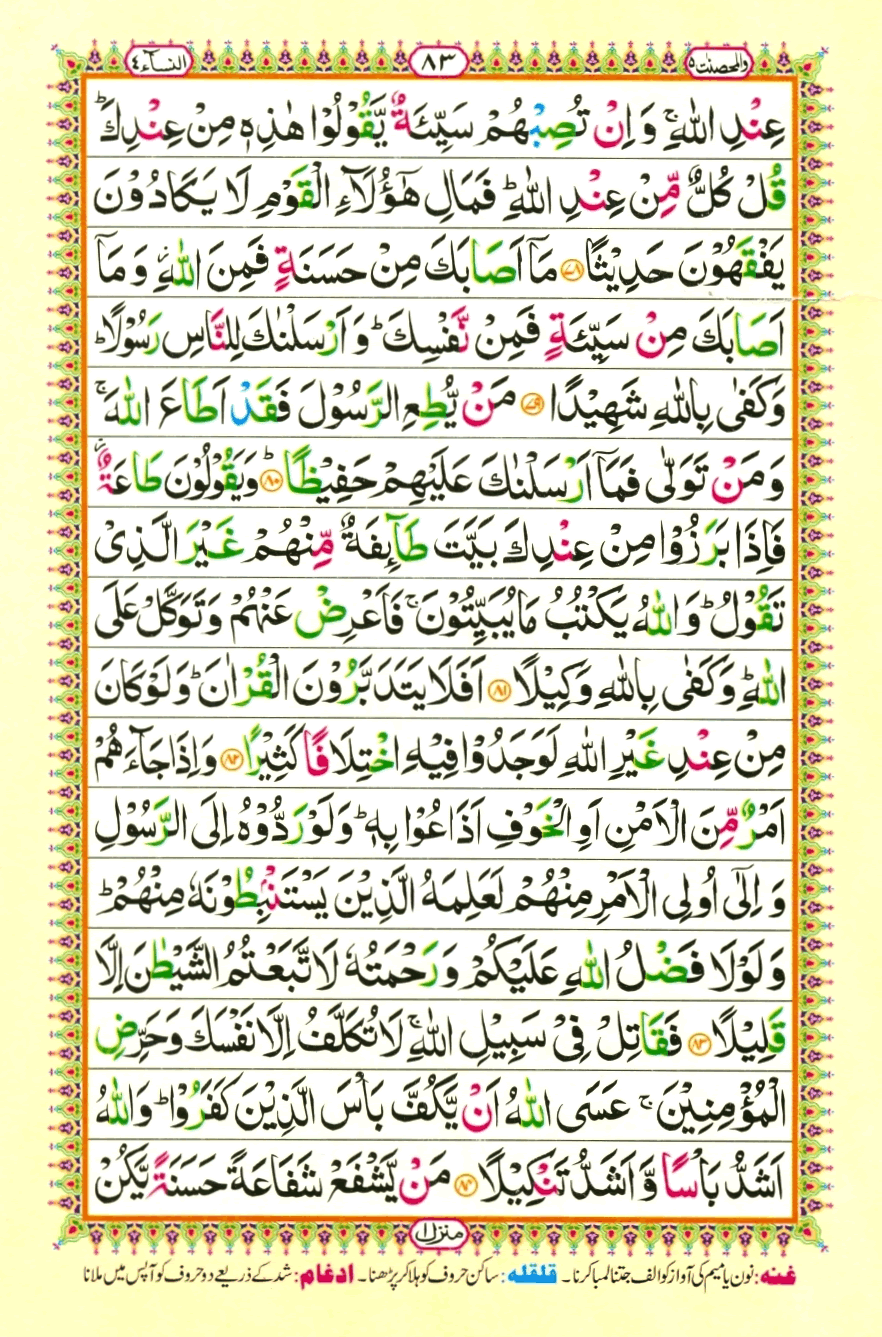 والمحصنت ۵
۸۳
النساء ۴
عِنْدِ اللّٰهِ ۚ وَ اِنْ تُصِبْهُمْ سَیِّئَةٌ یَّقُوْلُوْا هٰذِهٖ مِنْ عِنْدِكَ ؕ
قُلْ كُلٌّ مِّنْ عِنْدِ اللّٰهِ ؕ فَمَالِ هٰۤؤُلَآءِ الْقَوْمِ لَا یَكَادُوْنَ
یَفْقَهُوْنَ حَدِیْثًا ﴿۷۸﴾ مَاۤ اَصَابَكَ مِنْ حَسَنَةٍ فَمِنَ اللّٰهِ ؗ وَ مَاۤ
اَصَابَكَ مِنْ سَیِّئَةٍ فَمِنْ نَّفْسِكَ ؕ وَ اَرْسَلْنٰكَ لِلنَّاسِ رَسُوْلًا ؕ
وَ كَفٰی بِاللّٰهِ شَهِیْدًا ﴿۷۹﴾ مَنْ یُّطِعِ الرَّسُوْلَ فَقَدْ اَطَاعَ اللّٰهَ ۚ
وَ مَنْ تَوَلّٰی فَمَاۤ اَرْسَلْنٰكَ عَلَیْهِمْ حَفِیْظًا ﴿۸۰﴾ؕ وَ یَقُوْلُوْنَ طَاعَةٌ ؗ
فَاِذَا بَرَزُوْا مِنْ عِنْدِكَ بَیَّتَ طَآىِٕفَةٌ مِّنْهُمْ غَیْرَ الَّذِیْ
تَقُوْلُ ؕ وَ اللّٰهُ یَكْتُبُ مَا یُبَیِّتُوْنَ ۚ فَاَعْرِضْ عَنْهُمْ وَ تَوَكَّلْ عَلَی
اللّٰهِ ؕ وَ كَفٰی بِاللّٰهِ وَكِیْلًا ﴿۸۱﴾ اَفَلَا یَتَدَبَّرُوْنَ الْقُرْاٰنَ ؕ وَ لَوْ كَانَ
مِنْ عِنْدِ غَیْرِ اللّٰهِ لَوَجَدُوْا فِیْهِ اخْتِلَافًا كَثِیْرًا ﴿۸۲﴾ وَ اِذَا جَآءَهُمْ
اَمْرٌ مِّنَ الْاَمْنِ اَوِ الْخَوْفِ اَذَاعُوْا بِهٖ ؕ وَ لَوْ رَدُّوْهُ اِلَی الرَّسُوْلِ
وَ اِلٰۤی اُولِی الْاَمْرِ مِنْهُمْ لَعَلِمَهُ الَّذِیْنَ یَسْتَنْۢبِطُوْنَهٗ مِنْهُمْ ؕ
وَ لَوْ لَا فَضْلُ اللّٰهِ عَلَیْكُمْ وَ رَحْمَتُهٗ لَاتَّبَعْتُمُ الشَّیْطٰنَ اِلَّا
قَلِیْلًا ﴿۸۳﴾ فَقَاتِلْ فِیْ سَبِیْلِ اللّٰهِ ۚ لَا تُكَلَّفُ اِلَّا نَفْسَكَ وَ حَرِّضِ
الْمُؤْمِنِیْنَ ۚ عَسَی اللّٰهُ اَنْ یَّكُفَّ بَاْسَ الَّذِیْنَ كَفَرُوْا ؕ وَ اللّٰهُ
اَشَدُّ بَاْسًا وَّ اَشَدُّ تَنْكِیْلًا ﴿۸۴﴾ مَنْ یَّشْفَعْ شَفَاعَةً حَسَنَةً یَّكُنْ
منزل ۱
غنہ: نون یا میم کی آواز کو الف جتنا لمبا کرنا۔ قلقلہ: ساکن حروف کو ہلا کر پڑھنا۔ ادغام: شد کے ذریعے دو حروف کو آپس میں ملانا